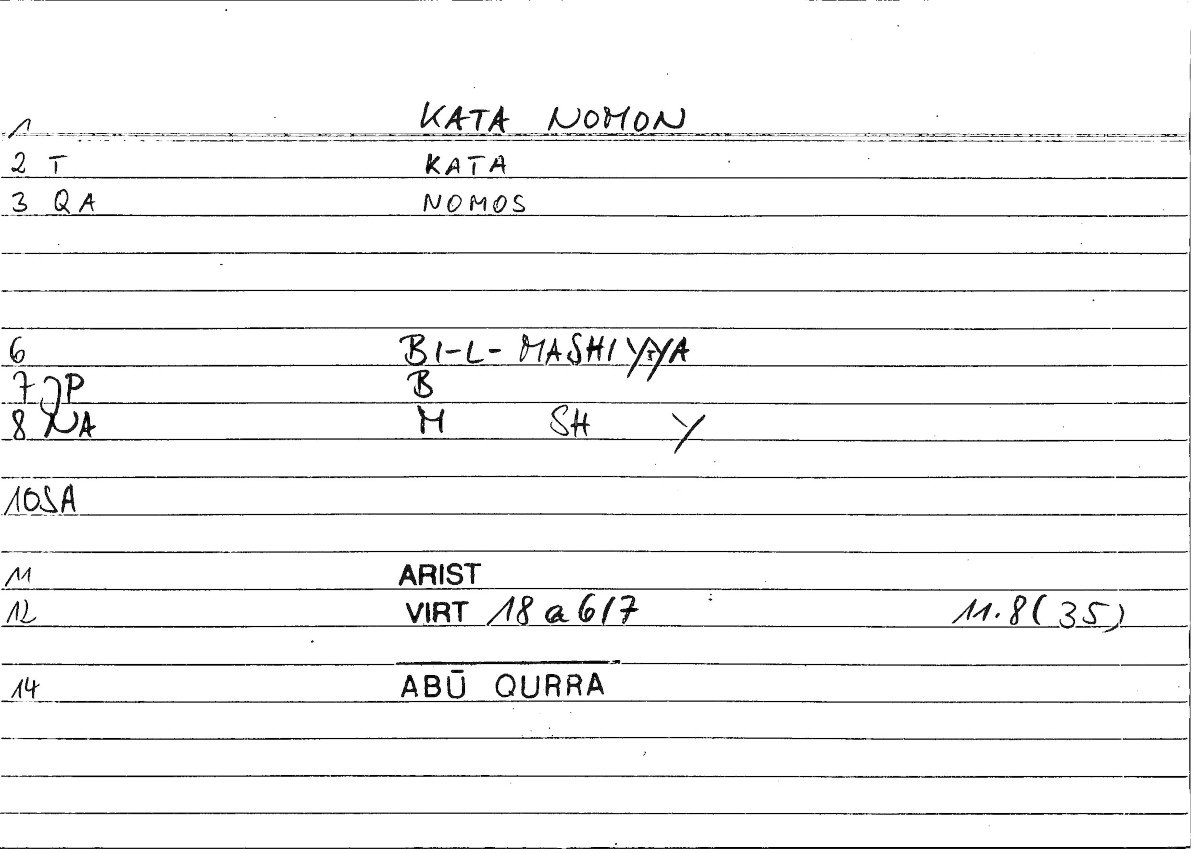 1 KATA NOMON
2 T KATA
3 QA NOMOS
6 BI-L-MASHIYYA
7 JP B
8 NA M SH Y
10 SA
11 ARIST
12 VIRT 18 a 6/7 11.8(35)
14 ABŪ QURRA